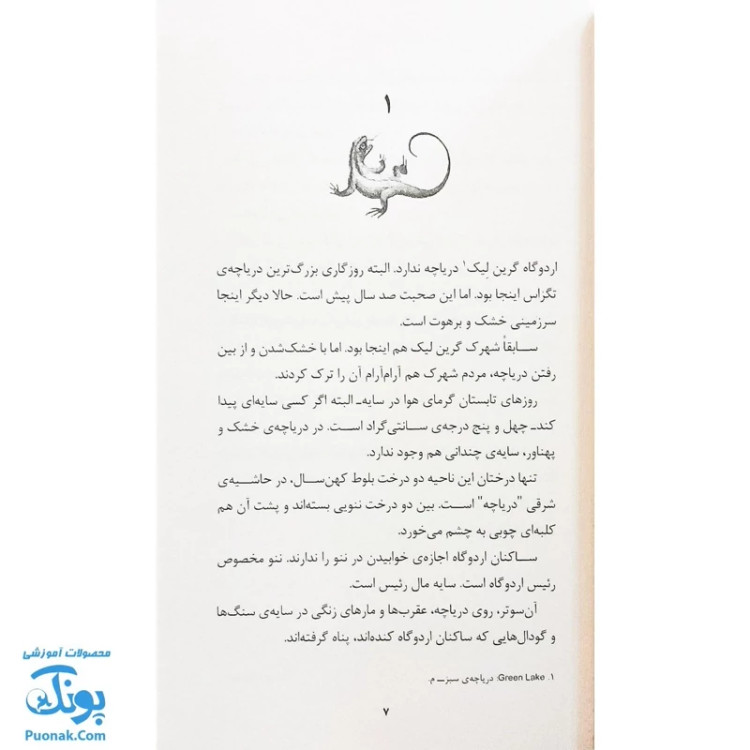 ۱
اردوگاه گرین لِیک۱ دریاچه ندارد. البته روزگاری بزرگ‌ترین دریاچه‌ی
تگزاس اینجا بود. اما این صحبت صد سال پیش است. حالا دیگر اینجا
سرزمینی خشک و برهوت است.
سابقاً شهرک گرین لیک هم اینجا بود. اما با خشک‌شدن و از بین
رفتن دریاچه، مردم شهرک هم آرام‌آرام آن را ترک کردند.
روزهای تابستان گرمای هوا در سایه‌ـ البته اگر کسی سایه‌ای پیدا
کند‌ـ چهل و پنج درجه‌ی سانتی‌گراد است. در دریاچه‌ی خشک و
پهناور، سایه‌ی چندانی هم وجود ندارد.
تنها درختان این ناحیه دو درخت بلوط کهن‌سال، در حاشیه‌ی
شرقی "دریاچه" است. بین دو درخت ننویی بسته‌اند و پشت آن هم
کلبه‌ای چوبی به چشم می‌خورد.
ساکنان اردوگاه اجازه‌ی خوابیدن در ننو را ندارند. ننو مخصوص
رئیس اردوگاه است. سایه مال رئیس است.
آن‌سوتر، روی دریاچه، عقرب‌ها و مارهای زنگی در سایه‌ی سنگ‌ها
و گودال‌هایی که ساکنان اردوگاه کنده‌اند، پناه گرفته‌اند.
۱. Green Lake: دریاچه‌ی سبز‌ـ م.
۷
محصولات آموزشی
پونک
Puonak.Com